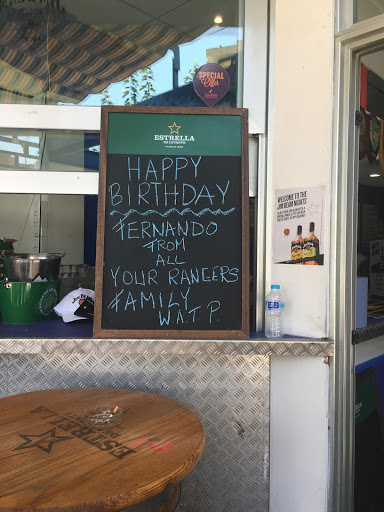 Special
Offer
ESTRELLA
DE LEVANTE
HAPPY
BIRTHDAY
FERNANDO
FROM
ALL
YOUR RANGERS
FAMILY
W.A.T.P.
WELCOME TO THE
JIM BEAM NIGHTS
ESTRELLA